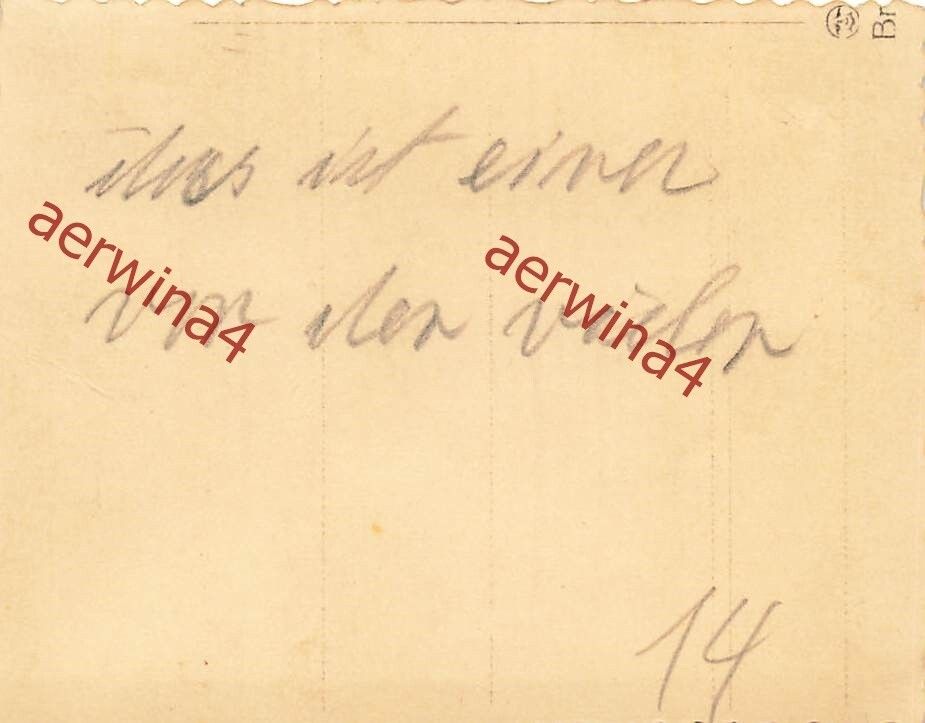 Br
das ist einer
von den vielen
aerwina4
aerwina4
14